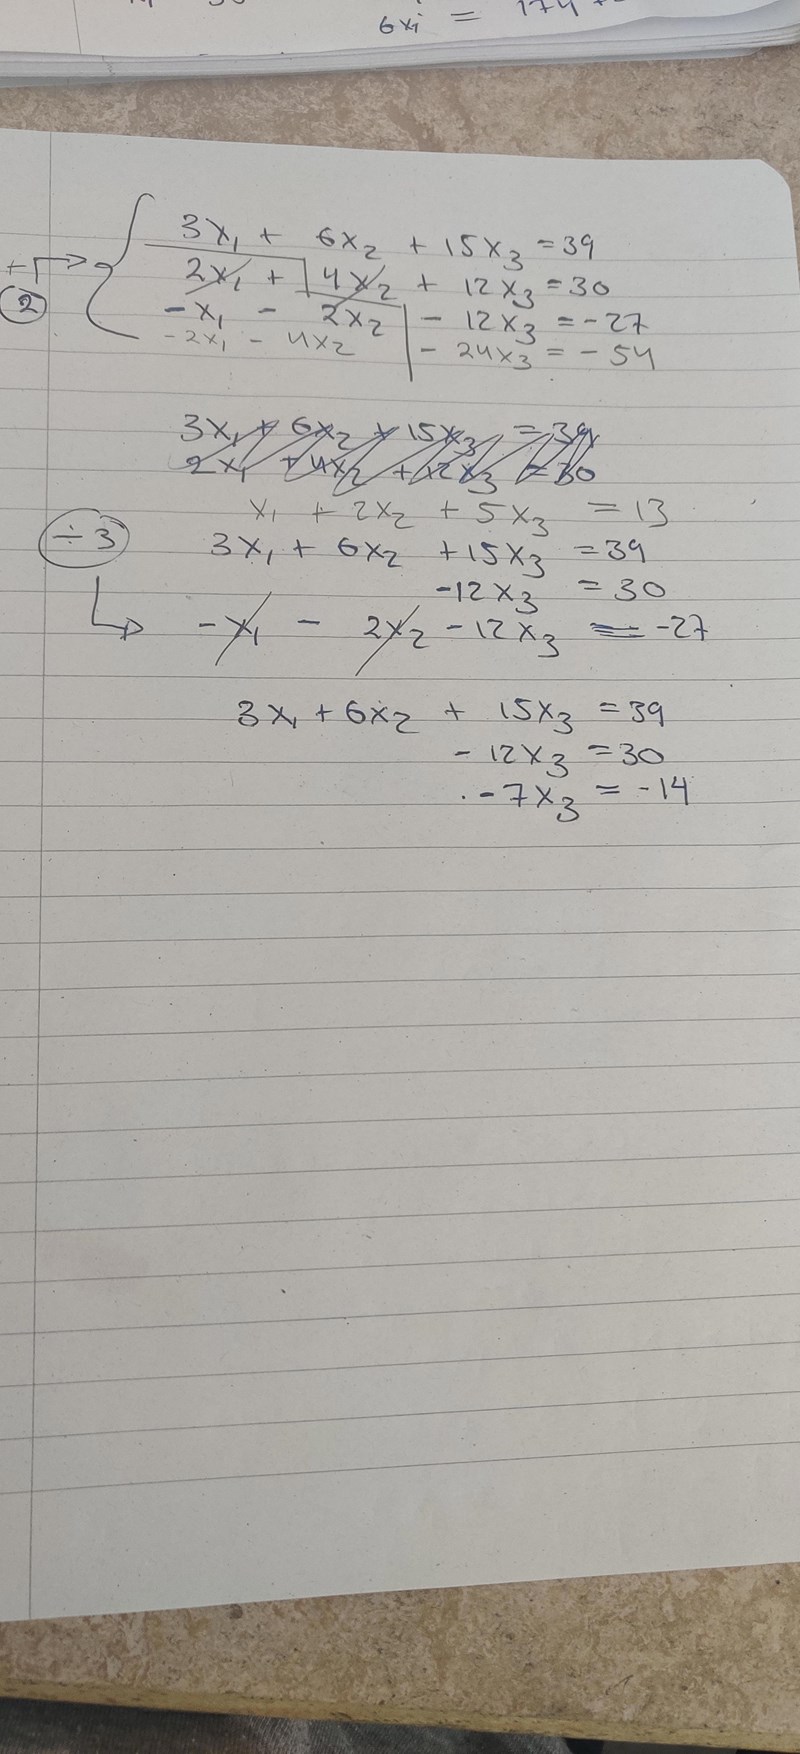 6x₁ = 174
3x₁ + 6x₂ + 15x₃ = 39
+ 2x₁ + 4x₂ + 12x₃ = 30
② -x₁ - 2x₂ - 12x₃ = -27
-2x₁ - 4x₂ - 24x₃ = -54
3x₁ + 6x₂ + 15x₃ = 39
2x₁ + 4x₂ + 12x₃ = 30
x₁ + 2x₂ + 5x₃ = 13
÷3 3x₁ + 6x₂ + 15x₃ = 39
-12x₃ = 30
-x₁ - 2x₂ - 12x₃ = -27
3x₁ + 6x₂ + 15x₃ = 39
-12x₃ = 30
-7x₃ = -14